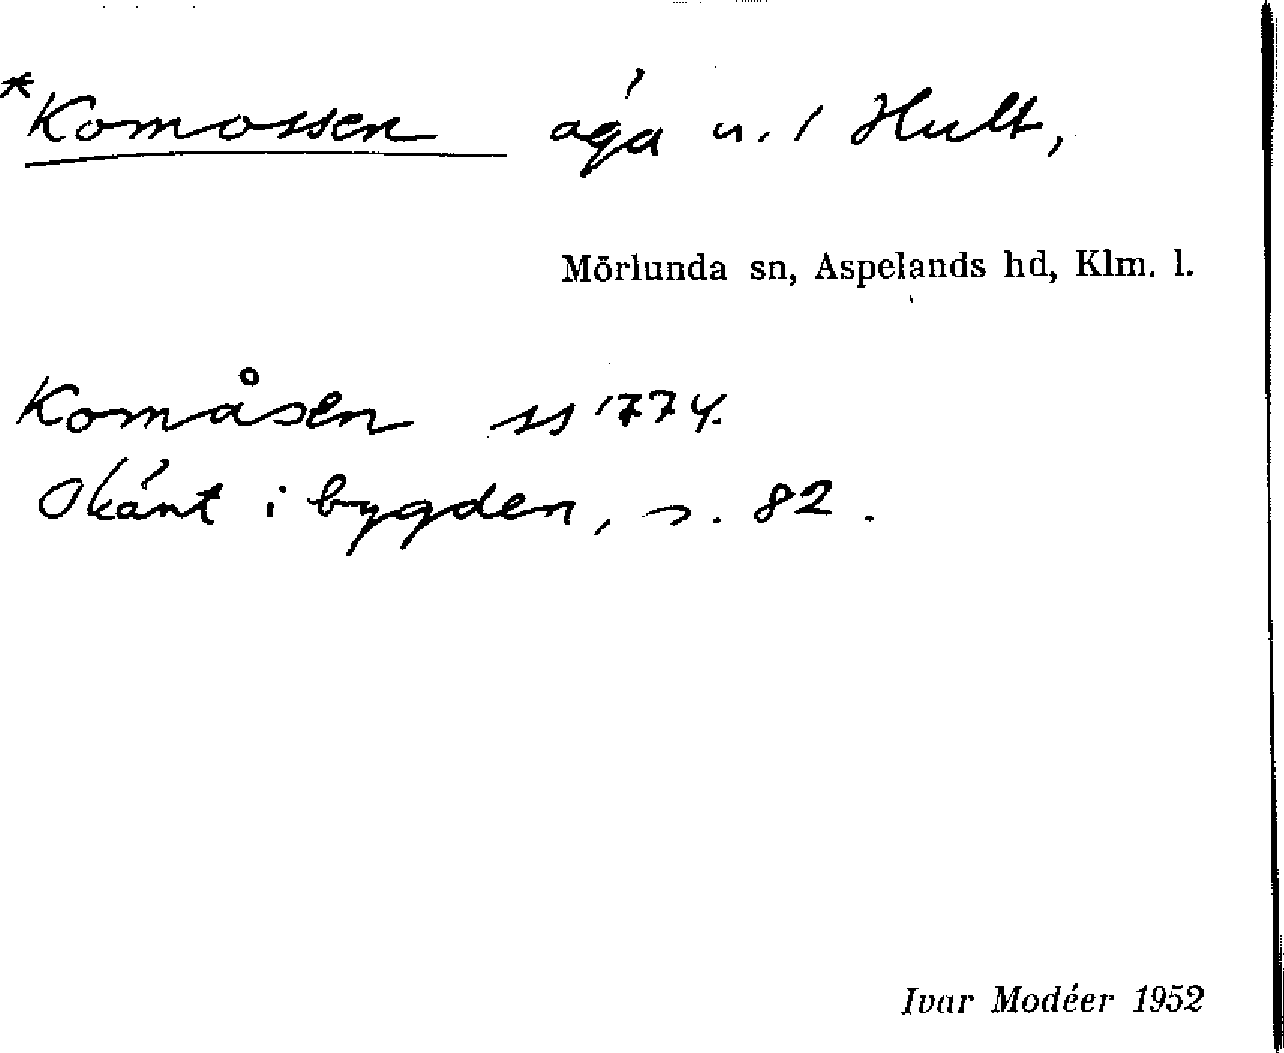 *Komossen äga u. / Hult,
Mörlunda sn, Aspelands hd, Klm. l.
Komåsen ss 1774.
Okänt i bygden, s. 82.
Ivar Modéer 1952